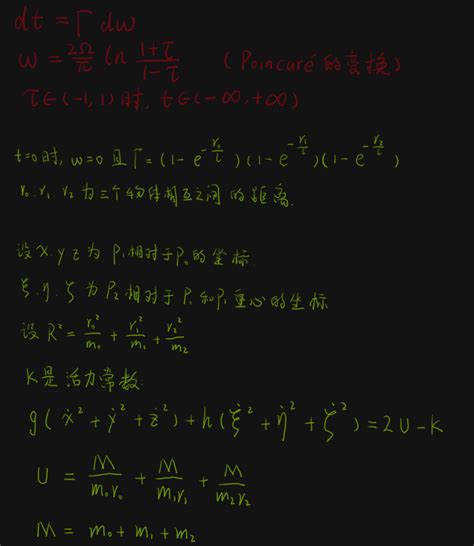 dt = Γ dω
ω = 2Ω/π ln (1+τ)/(1-τ) (Poincaré 的变换)
τ∈(-1,1)时, t∈(-∞,+∞)
t=0时, ω=0 且 Γ = (1-e^(-r₀/l))(1-e^(-r₁/l))(1-e^(-r₂/l))
r₀, r₁, r₂ 为三个物体相互之间的距离.
设 x y z 为 P₁相对于P₀的坐标.
ξ, η, ζ 为 P₂ 相对于 P₀ 和P₁重心的坐标
设 R² = r₀²/m₀ + r₁²/m₁ + r₂²/m₂
K是活力常数:
g(ẋ² + ẏ² + ż²) + h(ξ̇² + η̇² + ζ̇²) = 2U - K
U = M/(m₀r₀) + M/(m₁r₁) + M/(m₂r₂)
M = m₀ + m₁ + m₂